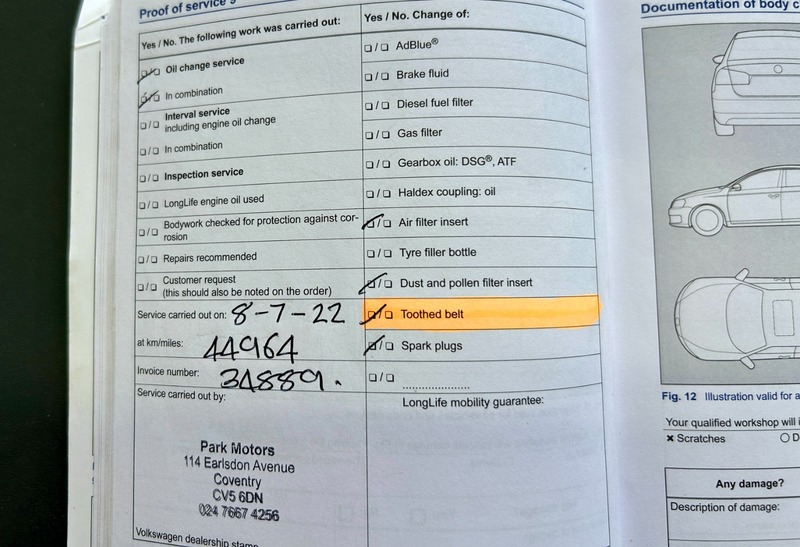 Proof of service
Documentation of body c
Yes / No. The following work was carried out:
☑/☐ Oil change service
☑/☐ In combination
☐/☐ Interval service
including engine oil change
☐/☐ In combination
☐/☐ Inspection service
☐/☐ LongLife engine oil used
☐/☐ Bodywork checked for protection against cor-
rosion
☐/☐ Repairs recommended
☐/☐ Customer request
(this should also be noted on the order)
Service carried out on: 8-7-22
at km/miles: 44964
Invoice number: 34889.
Service carried out by:
Park Motors
114 Earlsdon Avenue
Coventry
CV5 6DN
024 7667 4256
Volkswagen dealership stamp
Yes / No. Change of:
☐/☐ AdBlue®
☐/☐ Brake fluid
☐/☐ Diesel fuel filter
☐/☐ Gas filter
☐/☐ Gearbox oil: DSG®, ATF
☐/☐ Haldex coupling: oil
☑/☐ Air filter insert
☐/☐ Tyre filler bottle
☑/☐ Dust and pollen filter insert
☑/☐ Toothed belt
☑/☐ Spark plugs
☐/☐ ....................
LongLife mobility guarantee:
Fig. 12 Illustration valid for a
Your qualified workshop will i
× Scratches O D
Any damage?
Description of damage: